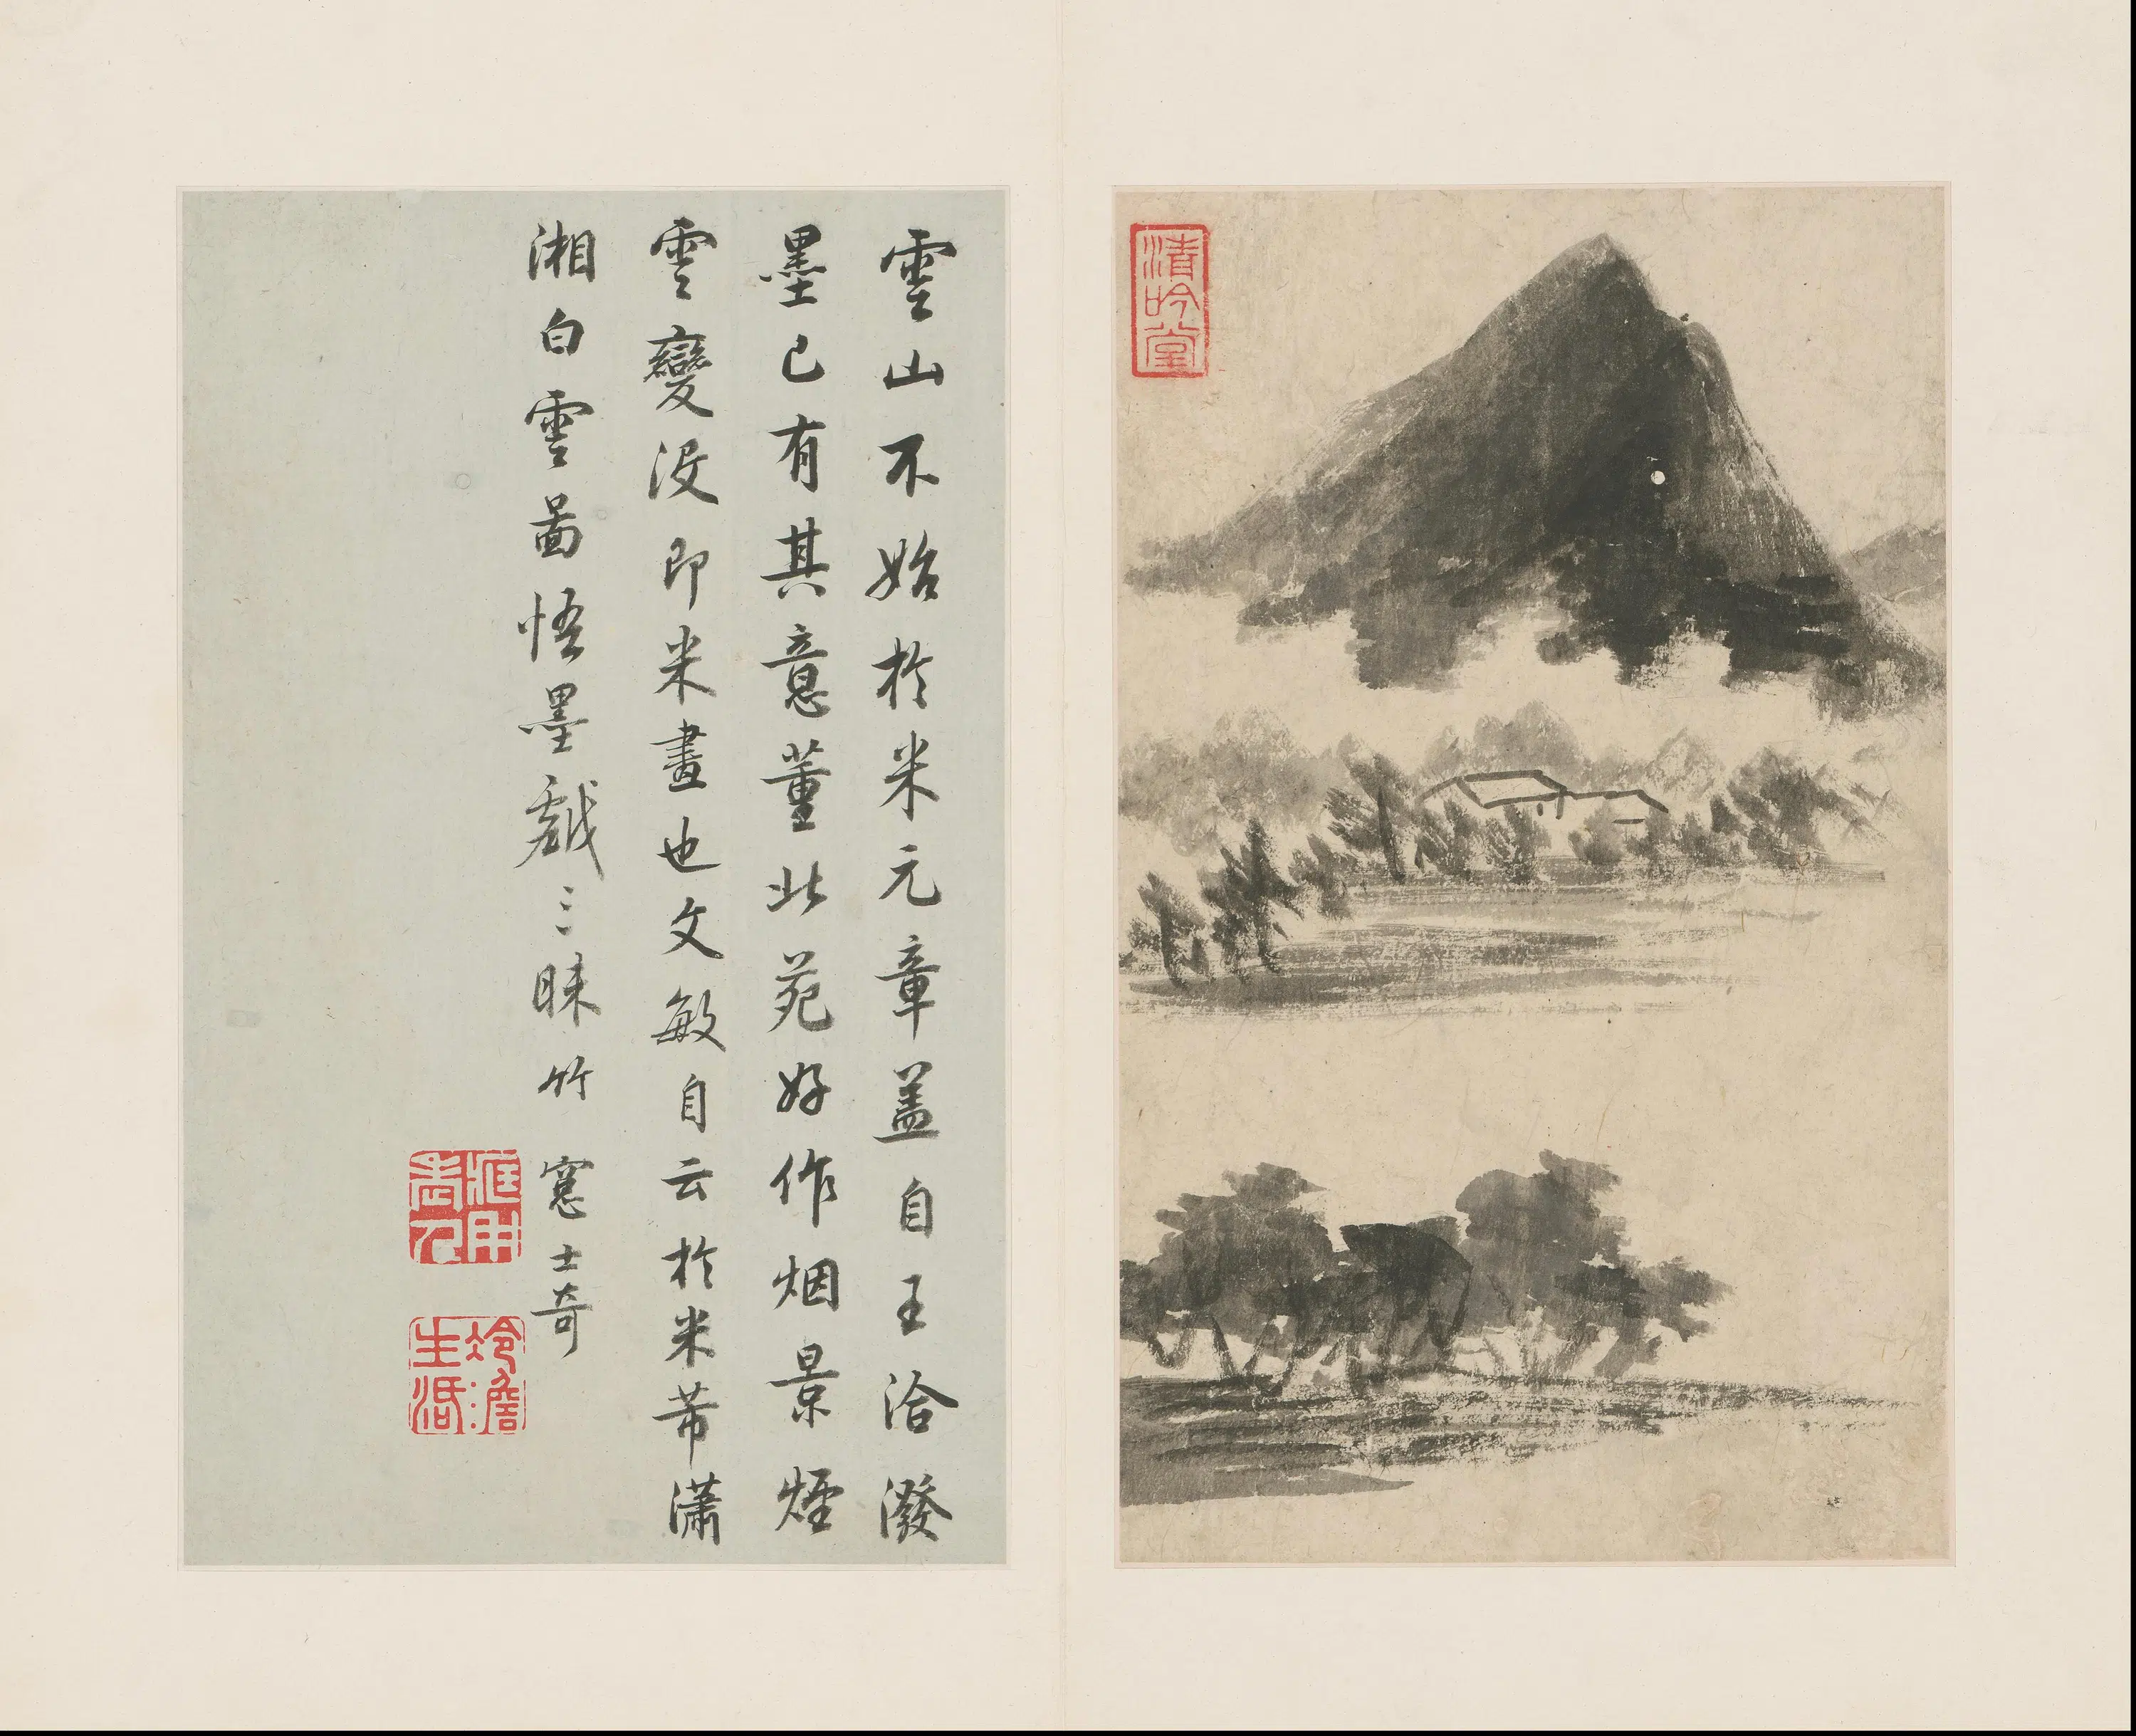 清吟堂
雲山不始於米元章盖自王洽潑
墨已有其意董北苑好作烟景煙
雲變没即米畫也文敏自云於米芾瀟
湘白雲圖悟墨戲三昧竹窻士奇
藏用老人
冷澹生活